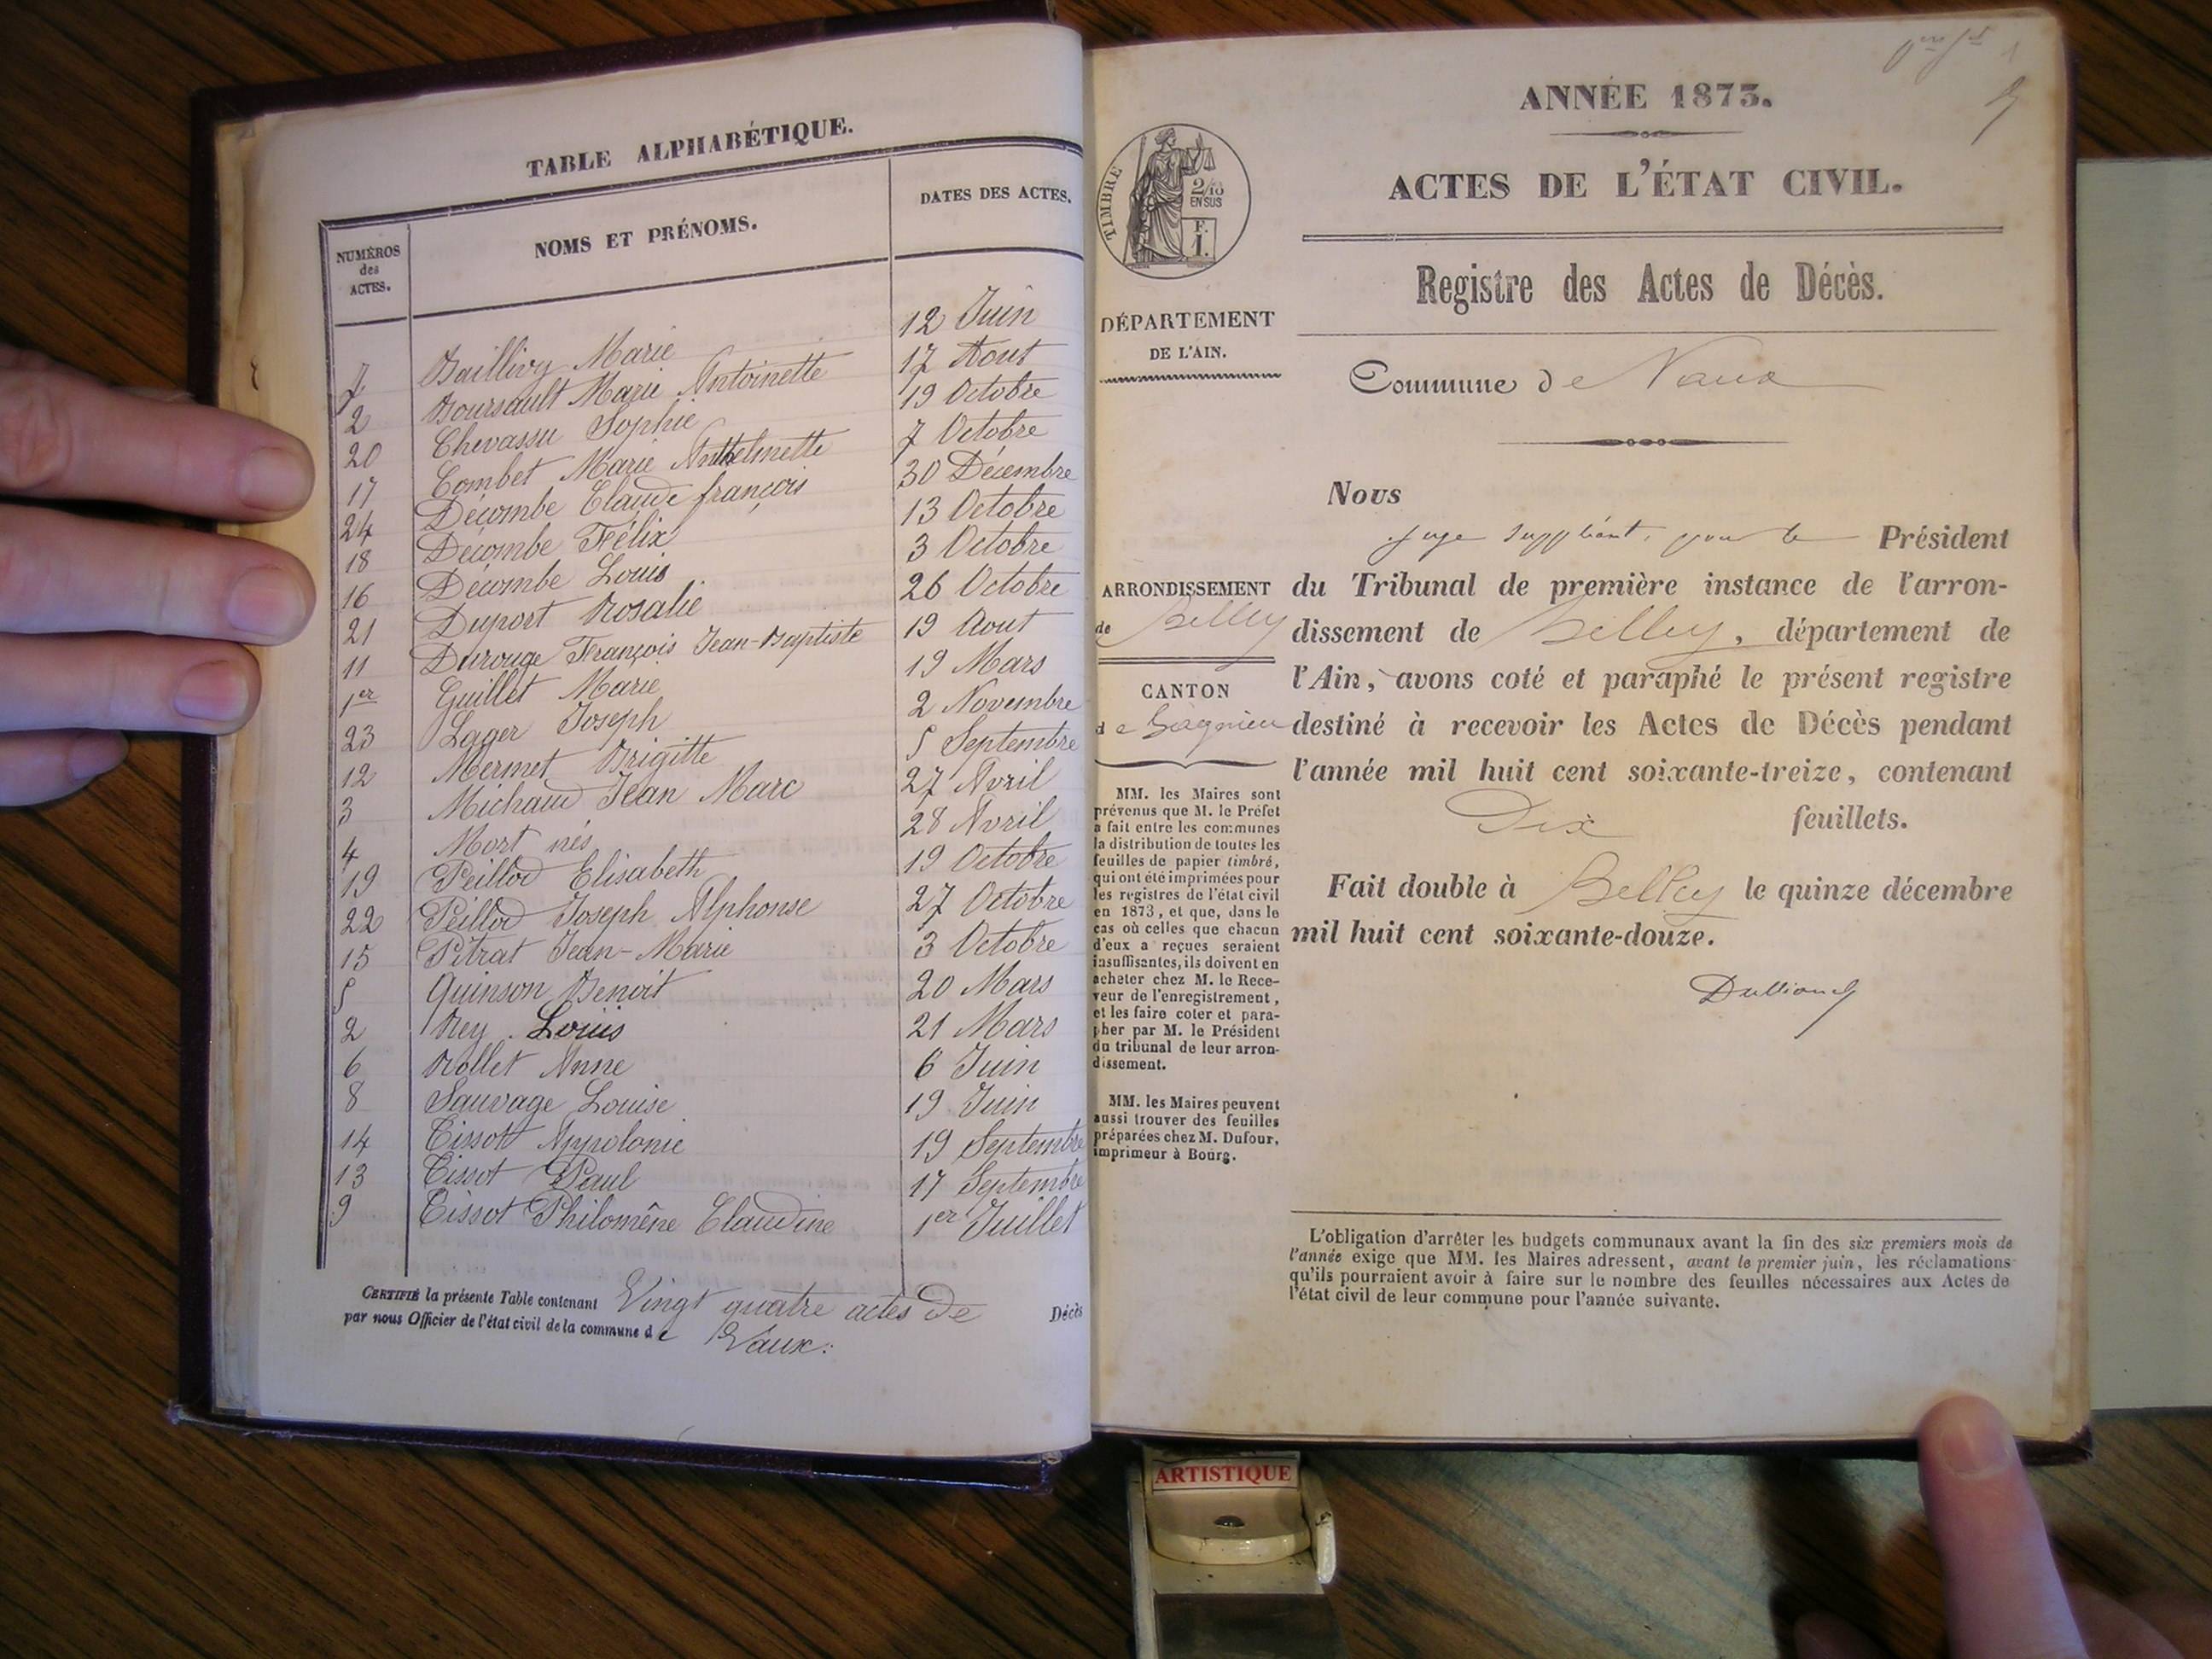 TABLE ALPHABÉTIQUE.
NUMÉROS des ACTES. NOMS ET PRÉNOMS. DATES DES ACTES.
7 Baillivy Marie 12 Juin
2 Boursault Marie Antoinette 17 Aout
20 Chevassu Sophie 19 Octobre
17 Combet Marie Anthelmette 7 Octobre
24 Décombe Claude françois 30 Décembre
18 Décombe Félix 13 Octobre
16 Décombe Louis 3 Octobre
21 Duport Rosalie 26 Octobre
11 Durouge François Jean-Baptiste 19 Aout
1er Guillet Marie 19 Mars
23 Lager Joseph 2 Novembre
12 Mermet Brigitte 5 Septembre
3 Michaud Jean Marc 27 Avril
4 Mort nés 28 Avril
19 Peillod Elisabeth 19 Octobre
22 Peillod Joseph Alphonse 27 Octobre
15 Pitrat Jean-Marie 3 Octobre
5 Quinson Benoit 20 Mars
2 Rey Louis 21 Mars
6 Rollet Anne 6 Juin
8 Sauvage Louise 19 Juin
14 Tissot Appolonie 19 Septembre
13 Tissot Paul 17 Septembre
9 Tissot Philomène Claudine 1er Juillet
CERTIFIÉ la présente Table contenant Vingt quatre actes de Décès
par nous Officier de l'état civil de la commune de Vaux.
ANNÉE 1873.
ACTES DE L'ÉTAT CIVIL.
Registre des Actes de Décès.
Commune de Vaux
TIMBRE
2/10
EN SUS
F.
1.
DÉPARTEMENT
DE L'AIN.
ARRONDISSEMENT
de Belley
CANTON
de Lagnieu
MM. les Maires sont
prévenus que M. le Préfet
a fait entre les communes
la distribution de toutes les
feuilles de papier timbré,
qui ont été imprimées pour
les registres de l'état civil
en 1873, et que, dans le
cas où celles que chacun
d'eux a reçues seraient
insuffisantes, ils doivent en
acheter chez M. le Rece-
veur de l'enregistrement,
et les faire coter et para-
pher par M. le Président
du tribunal de leur arron-
dissement.
MM. les Maires peuvent
aussi trouver des feuilles
préparées chez M. Dufour,
imprimeur à Bourg.
Nous
juge suppléant, pour le Président
du Tribunal de première instance de l'arron-
dissement de Belley, département de
l'Ain, avons coté et paraphé le présent registre
destiné à recevoir les Actes de Décès pendant
l'année mil huit cent soixante-treize, contenant
Dix feuillets.
Fait double à Belley le quinze décembre
mil huit cent soixante-douze.
L'obligation d'arrêter les budgets communaux avant la fin des six premiers mois de
l'année exige que MM. les Maires adressent, avant le premier juin, les réclamations
qu'ils pourraient avoir à faire sur le nombre des feuilles nécessaires aux Actes de
l'état civil de leur commune pour l'année suivante.
ARTISTIQUE